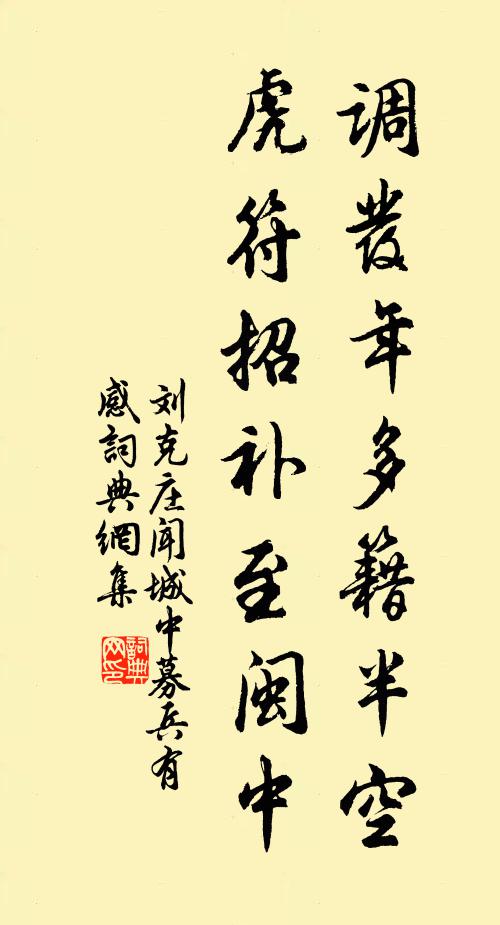 调发年多籍半空
虎符招补至闽中
刘克庄闻城中募兵有
感詞典網集
詞典
网印